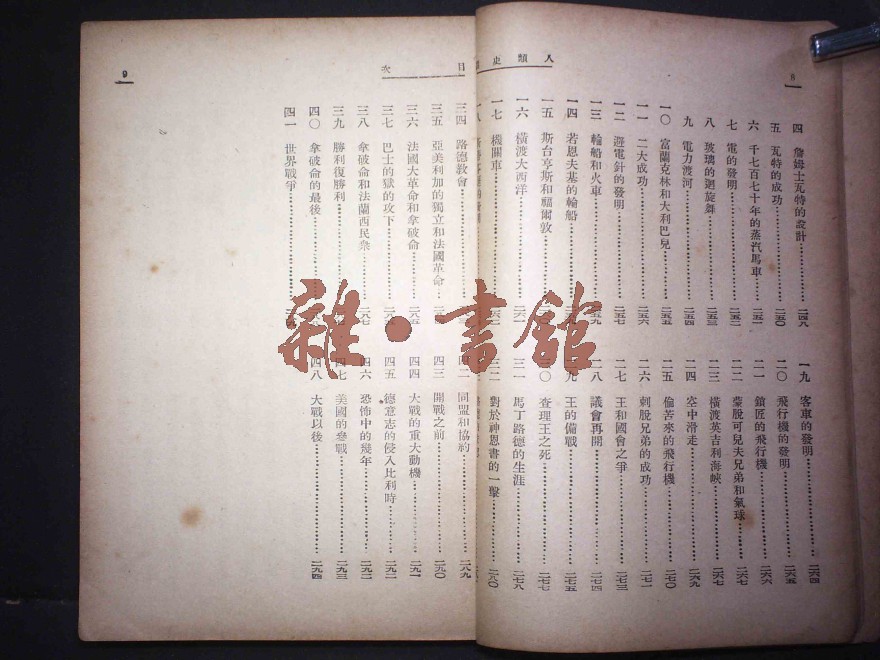 8
人類史
四 詹姆士瓦特的設計……二四八
五 瓦特的成功……二五〇
六 千七百七十年的蒸汽馬車……二五一
七 電的發明……二五二
八 玻璃的迴旋舞……二五三
九 電力渡河……二五四
一〇 富蘭克林和大利巴兒……二五五
一一 二大成功……二五六
一二 避電針的發明……二五七
一三 輪船和火車……二五九
一四 若恩夫基的輪船
一五 斯台亨斯和福爾敦
一六 橫渡大西洋……二六一
一七 機關車
一八
一九 客車的發明……二六四
二〇 飛行機的發明……二六五
二一 鎖匠的飛行機……二六六
二二 蒙脫可兒夫兄弟和氣球……二六七
二三 橫渡英吉利海峽……二六七
二四 空中滑走……二六九
二五 偷若來的飛行機……二七〇
二六 刺脫兄弟的成功……二七一
二七 王和國會之爭……二七三
二八 議會再開……二七四
二九 王的備戰……二七五
三〇 查理王之死……二七七
三一 馬丁路德的生涯……二七八
三二 對於神恩書的一擊……二八〇
目次
9
三四 路德教會
三五 亞美利加的獨立和法國革命
三六 法國大革命和拿破侖
三七 巴士的獄的攻下
三八 拿破侖和法蘭西民衆……二八七
三九 勝利復勝利
四〇 拿破侖的最後
四一 世界戰爭
四二 同盟和協約……二八九
四三 開戰之前……二九〇
四四 大戰的重大動機……二九一
四五 德意志的侵入比利時……二九二
四六 恐怖中的幾年……二九二
四七 美國的參戰……二九三
四八 大戰以後……二九四
雜·書館